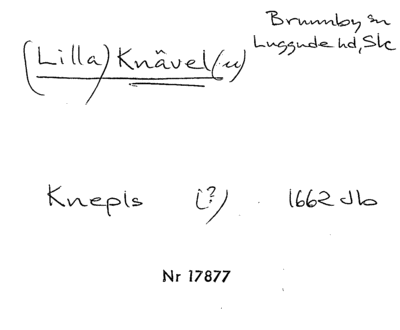 Brunnby sn
Luggude hd, Sk
(Lilla) Knävel (u)
Knepls (?) 1662 Jb
Nr 17877